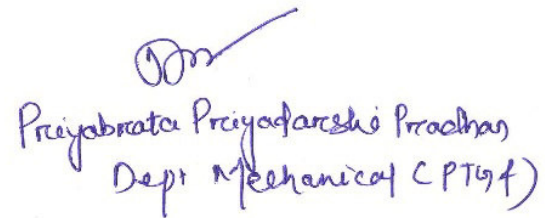 Priyabrata Priyadarshi Pradhan
Dept Mechanical (PTGF)